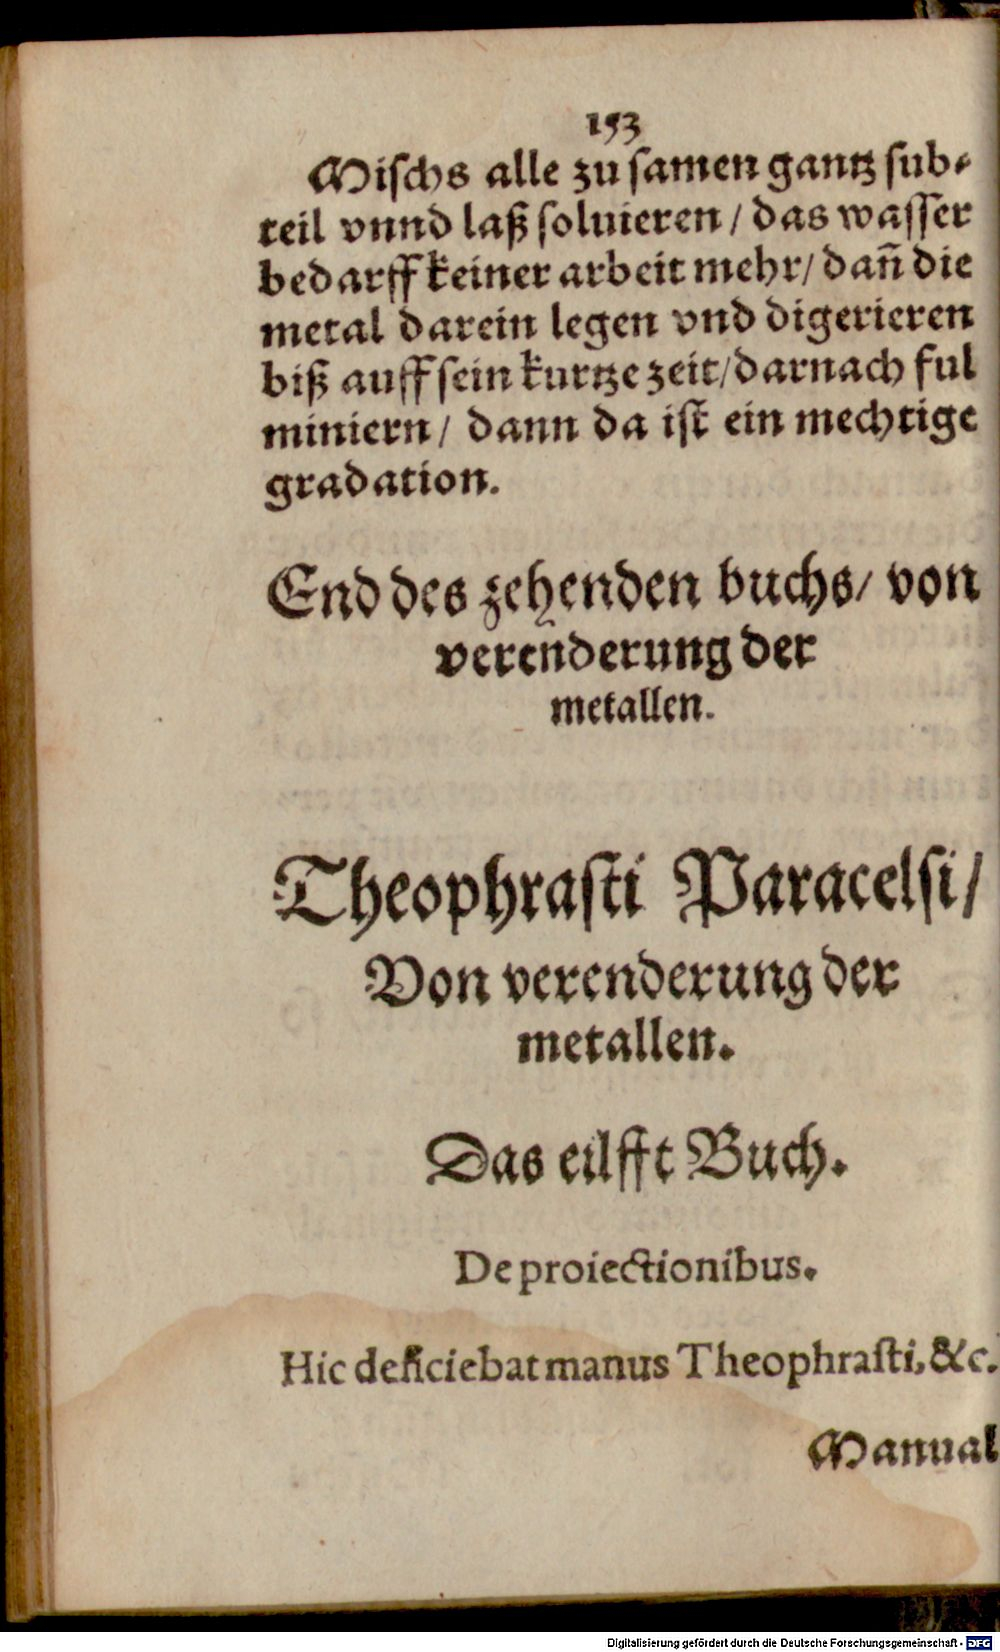 153
Mischs alle zu samen gantz sub⸗
teil vnnd laß soluieren / das wasser
bedarff keiner arbeit mehr / dañ die
metal darein legen vnd digerieren
biß auff sein kurtze zeit / darnach ful
miniern / dann da ist ein mechtige
gradation.
End des zehenden buchs / von
verenderung der
metallen.
Theophrasti Paracelsi /
Von verenderung der
metallen.
Das eilfft Buch.
De proiectionibus.
Hic deficiebat manus Theophrasti, &c.
Manual
Digitalisierung gefördert durch die Deutsche Forschungsgemeinschaft - DFG